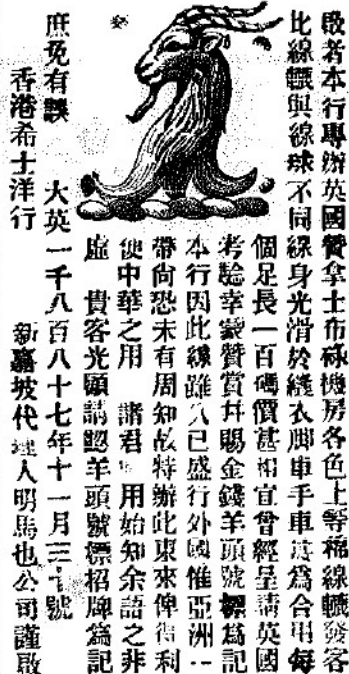 啟者本行專辦英國贊拿士布碌機房各色上等稱線轆發客
比線轆與線球不同線身光滑於縫衣脚車手車甚為合用每
個足長一百碼價甚相宜曾經呈請英國
考驗幸蒙贊賞幷賜金錢羊頭號標為記
本行因此線雖久已盛行外國惟亞洲一
帶尚恐未有周知故特辦此東來俾得利
便中華之用 諸君 用始知余語之非
虛 貴客光顧請認羊頭號標招牌為記
庶免有誤 大英一千八百八十七年十一月三十號
香港希士洋行 新嘉坡代理人明馬也公司謹啟